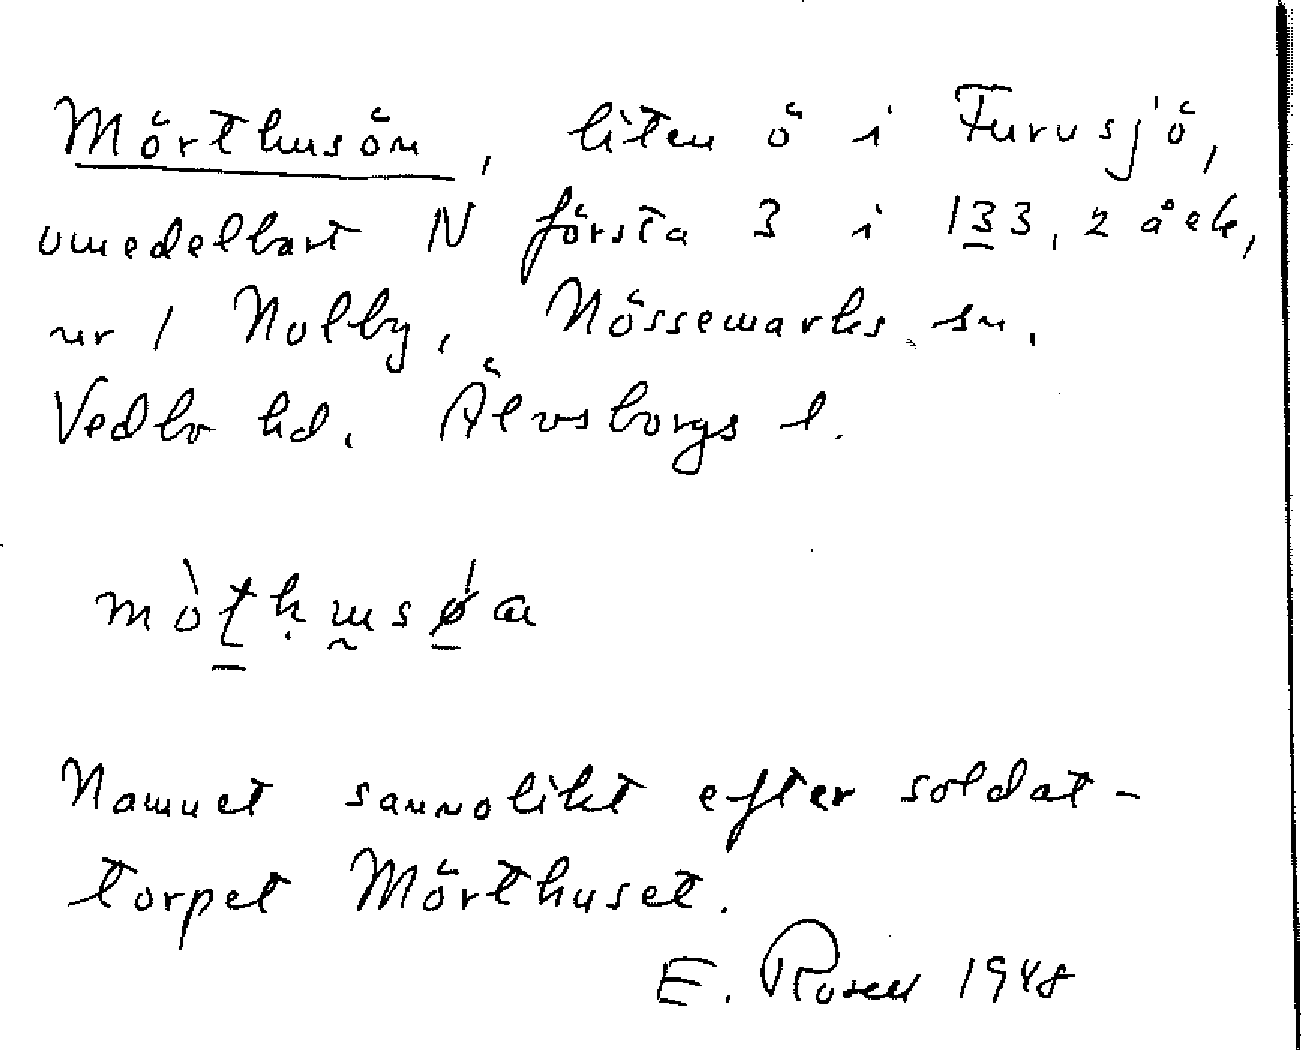 Mörthusön, liten ö i Furusjö,
omedelbart N första 3 i 133, 2 åek,
nr 1 Nolby, Nössemarks sn.
Vedbo hd. Älvsborgs l.
Namnet sannolikt efter soldat-
torpet Mörthuset.
E. Rosen 1948